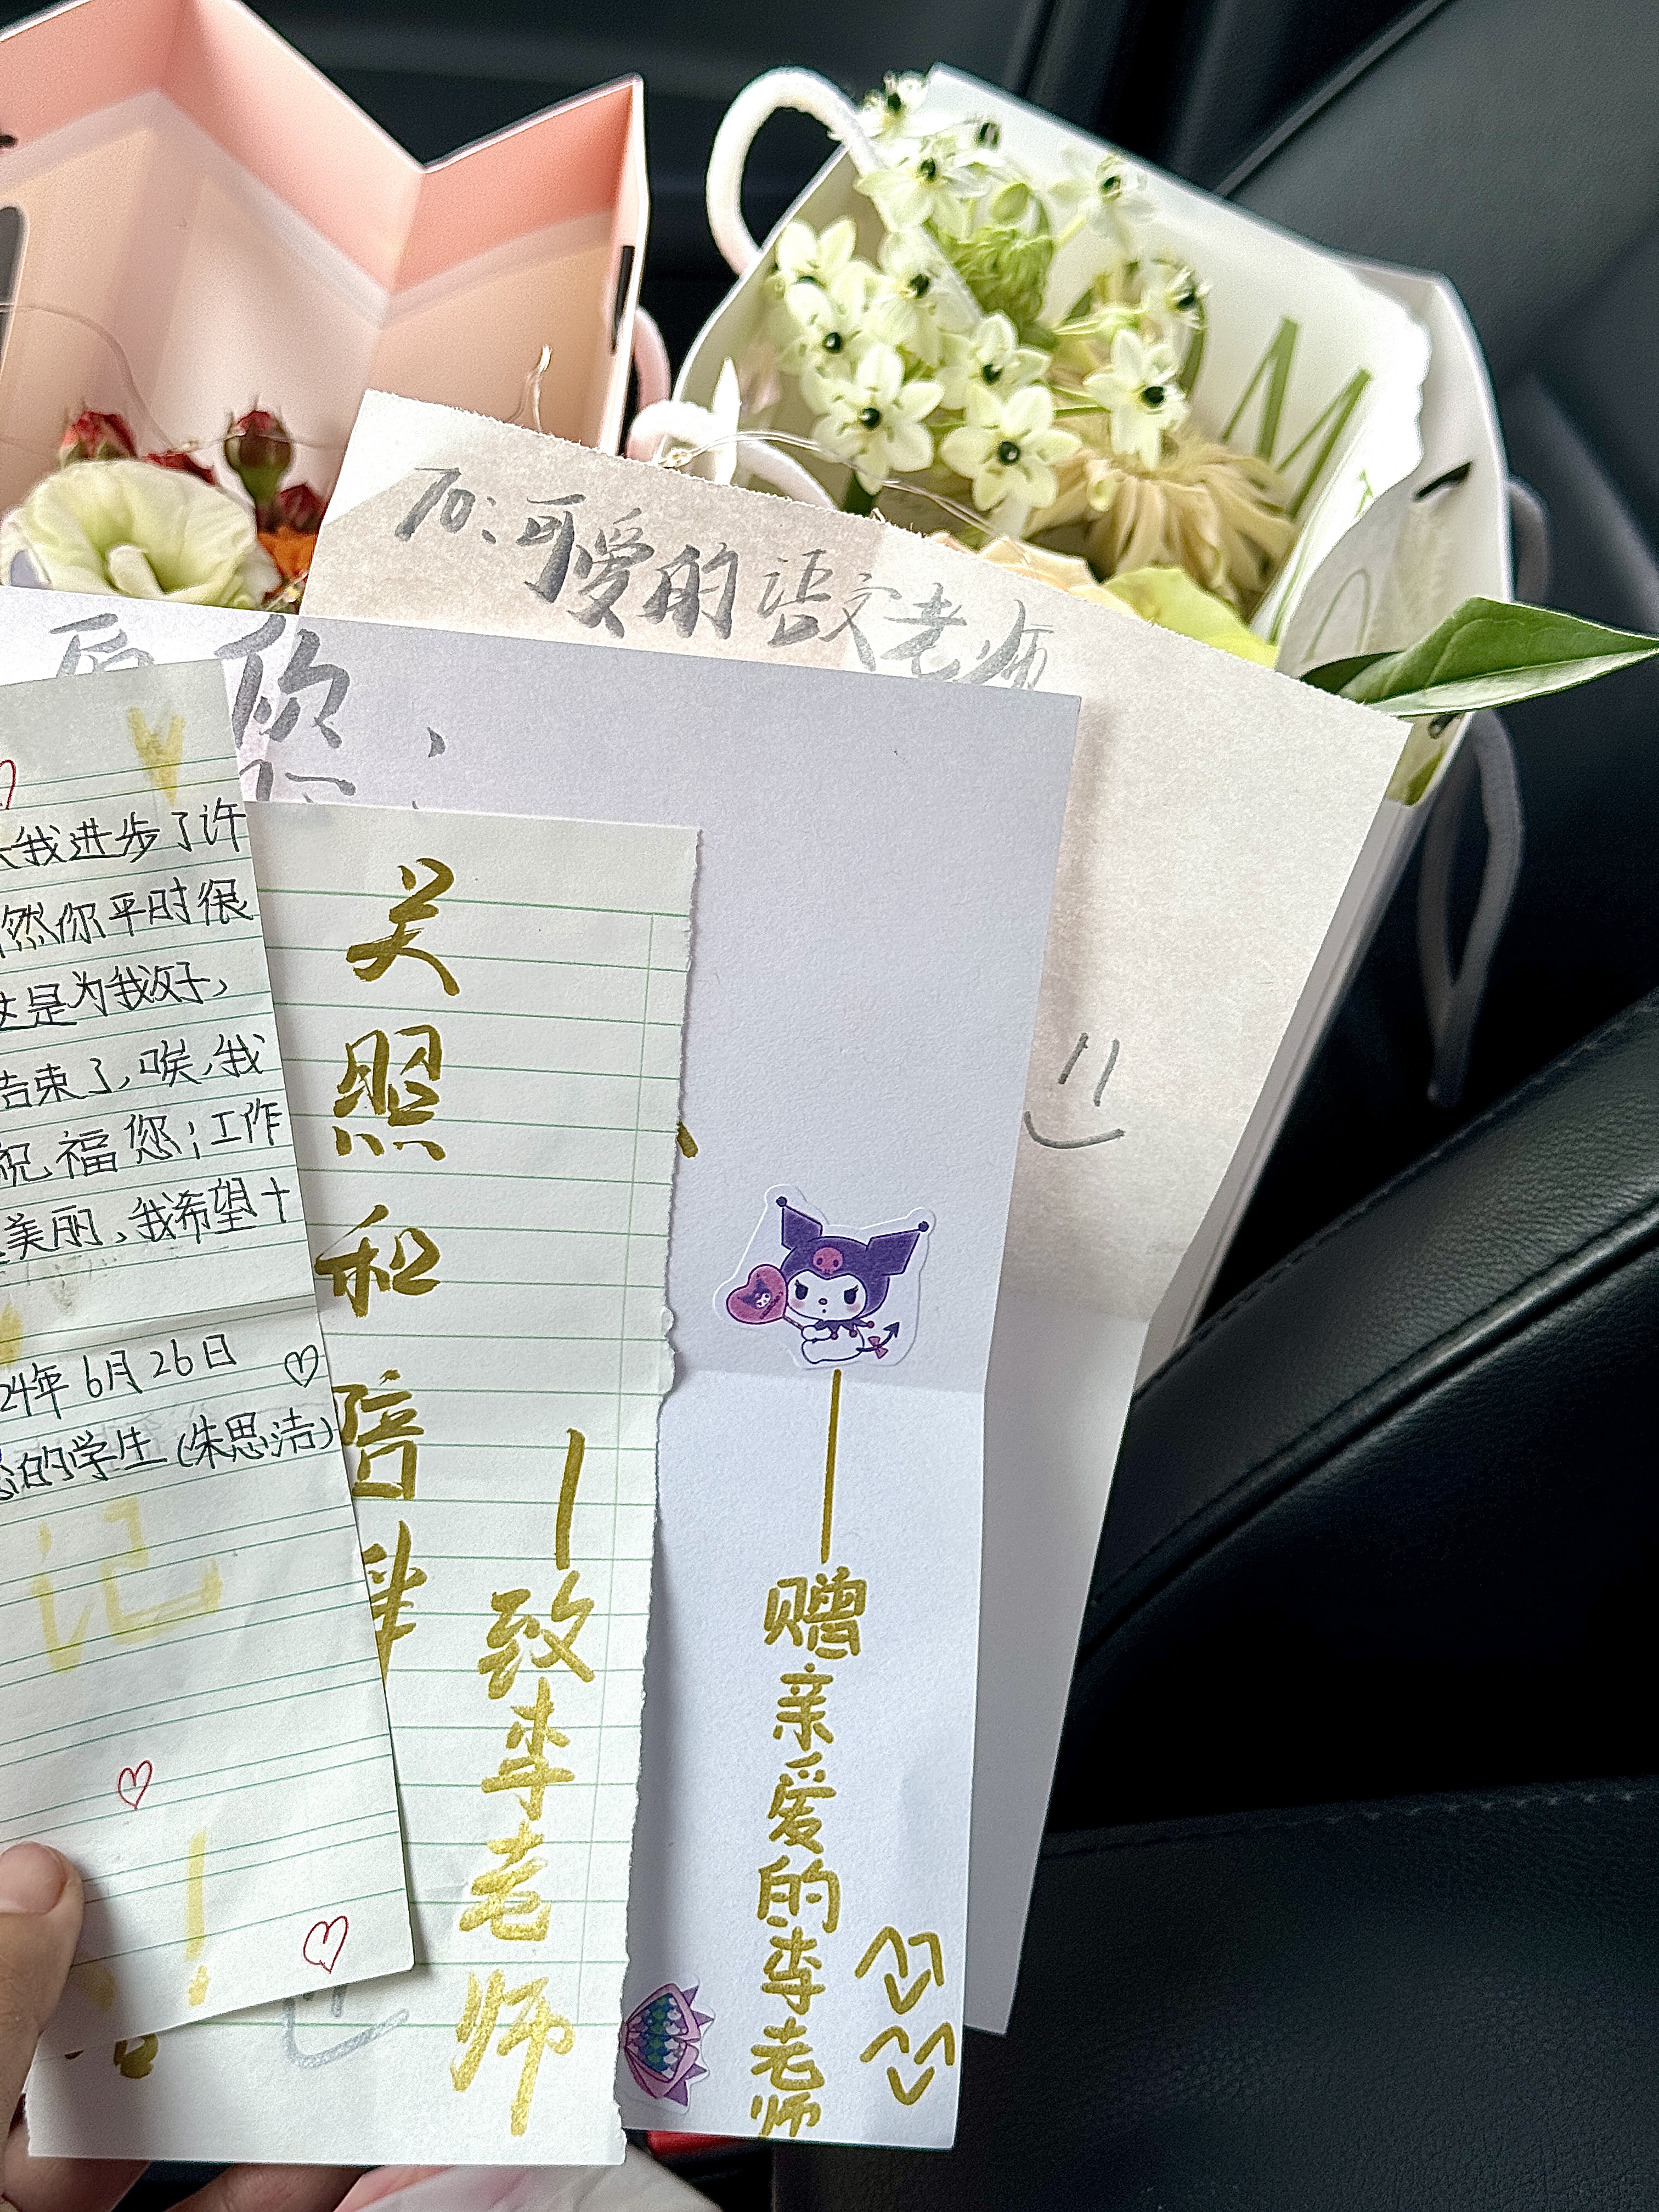 To:可爱的语文老师
您,
我进步了许
然你平时很
这是为我好,
结束了,唉,我
祝福您;工作
美丽,我希望十
24年6月26日
的学生(朱思洁)
记
!
关照和陪伴
—致李老师
—赠亲爱的李老师
M